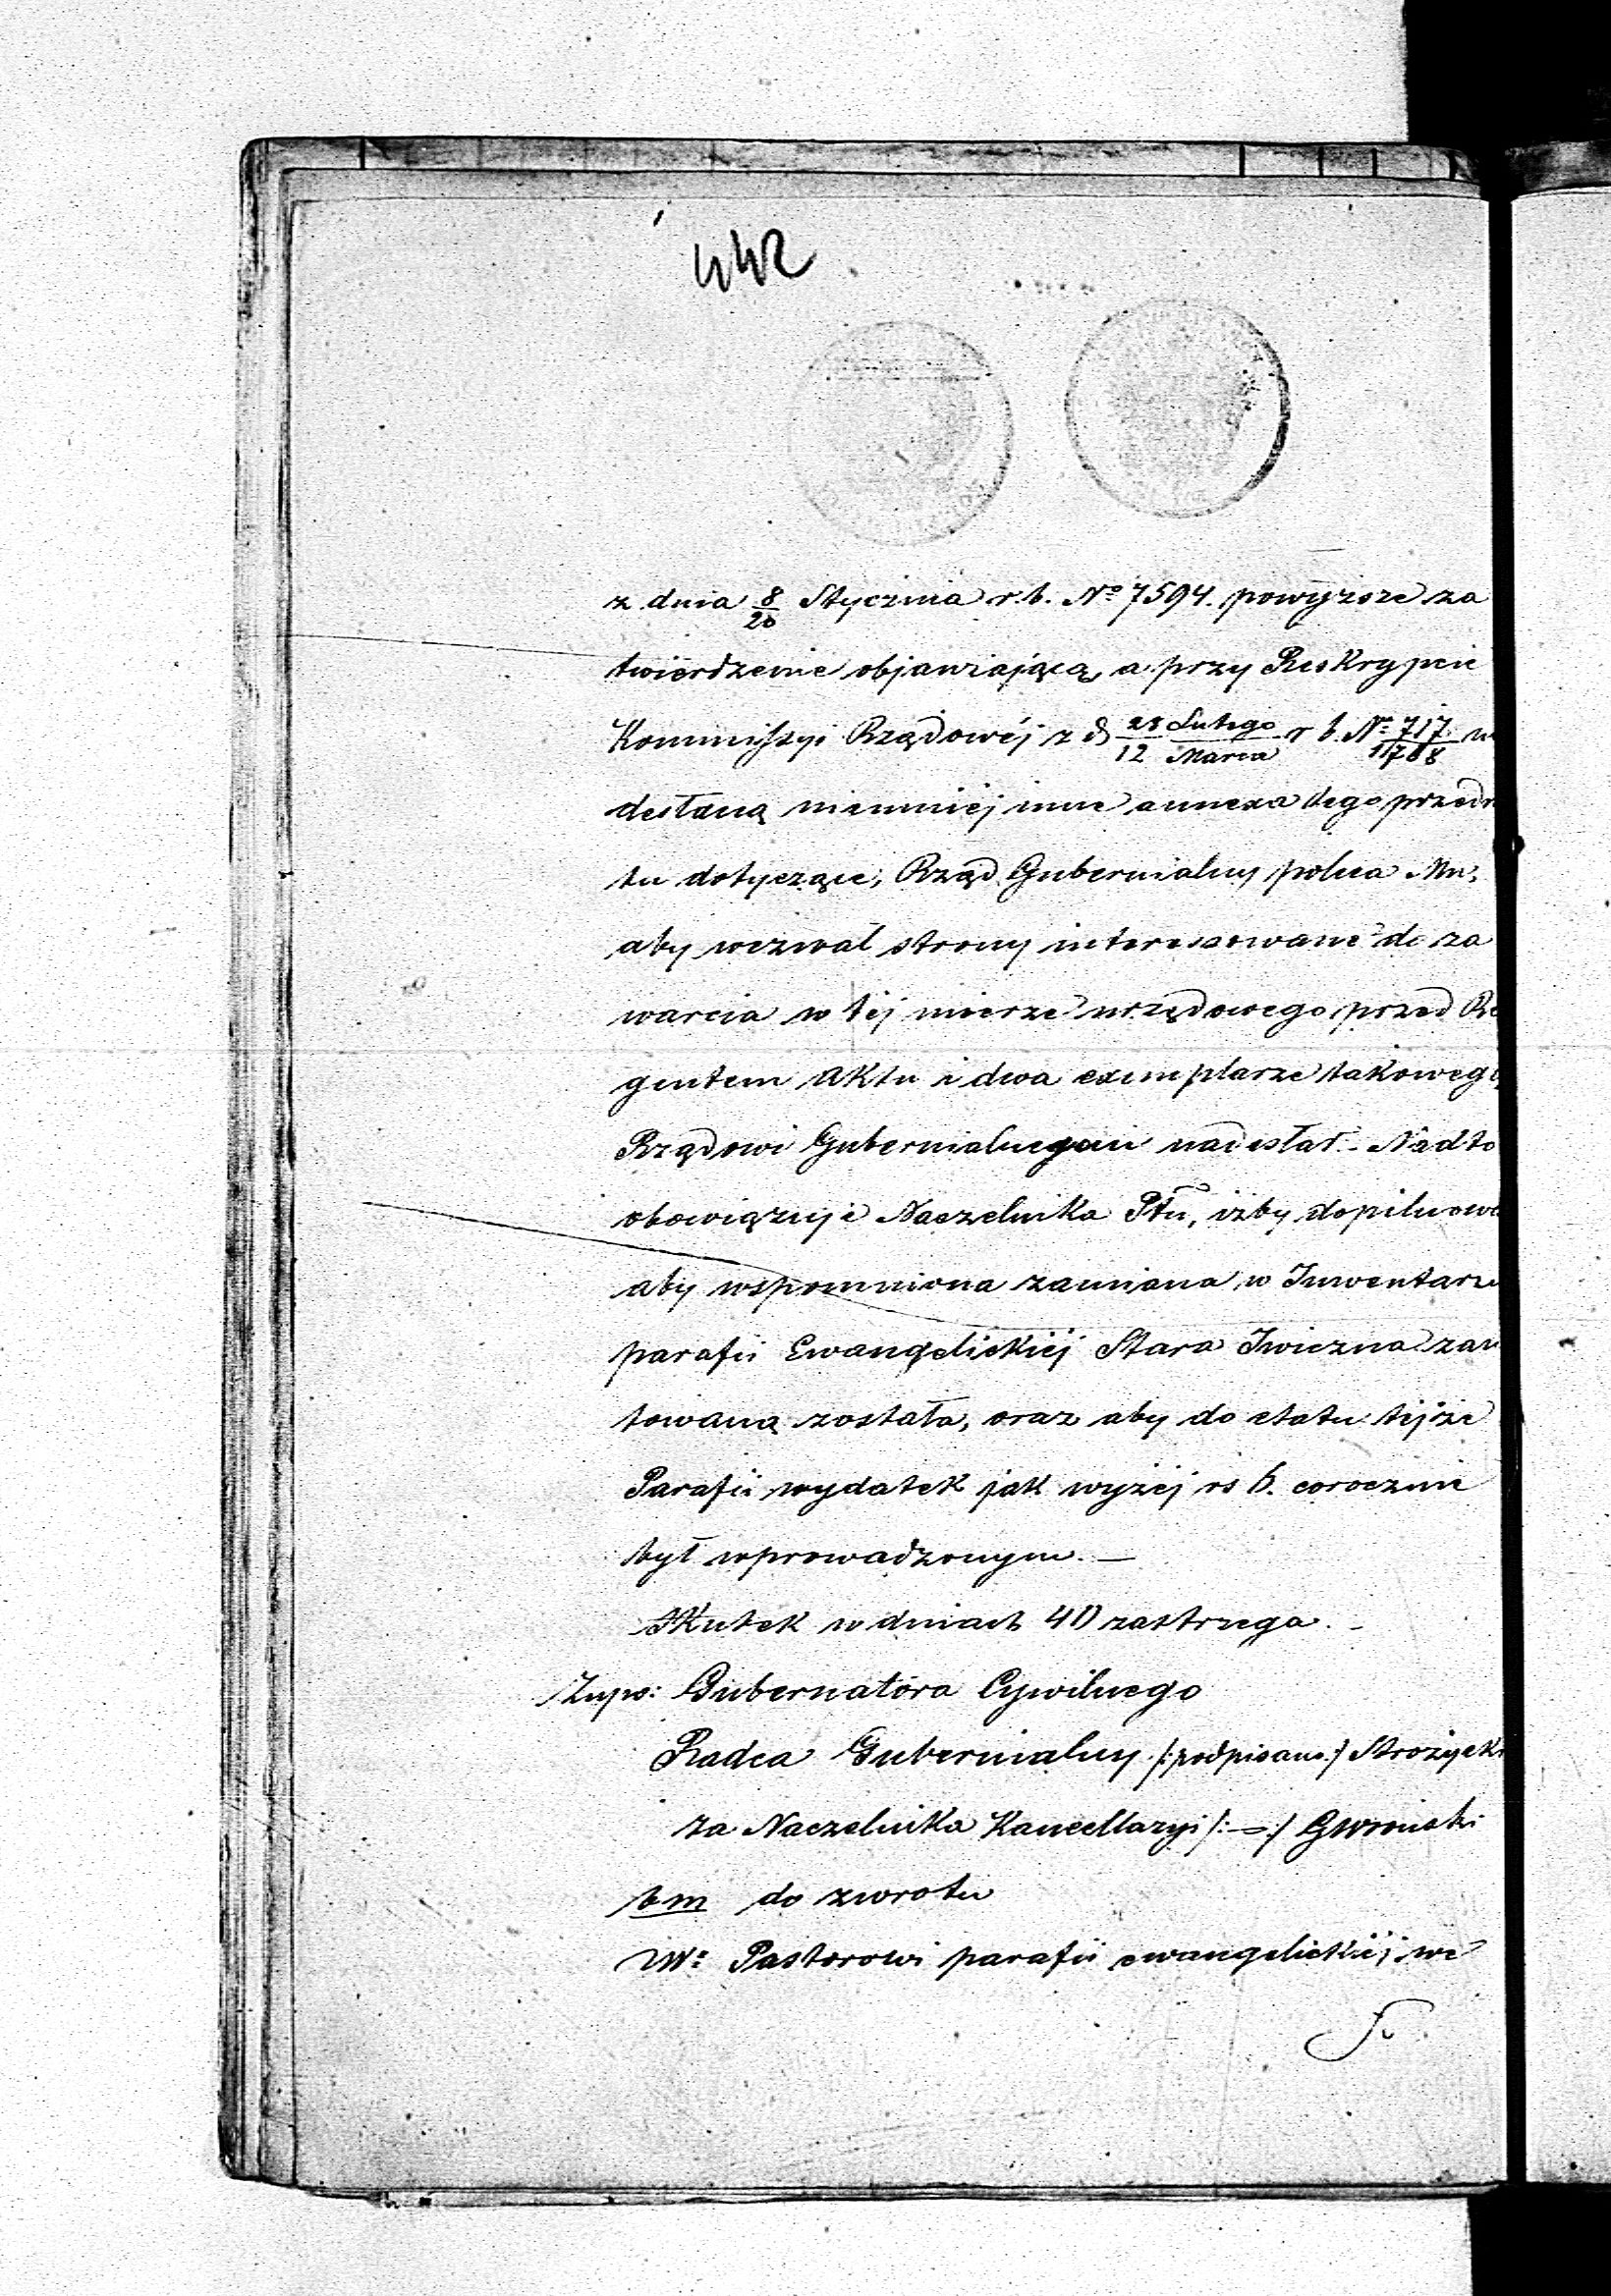 442
z dnia 8/20 Stycznia r.b. No 7594. powyższe za
twierdzenie objawiającą, a przy Reskrypcie
Kommissyi Rządowéj z d 28 Lutego/12 Marca r b. No 717/11788
desłaną niemniéj inne annexa tego przedm
tu dotyczące, Rząd Gubernialny poleca Mu,
aby wezwał strony interessowane do za
warcia w téj mierze urzędowego przed Re
gentem aktu i dwa exemplarze takowego
Rządowi Gubernialnemu nadesłał. - Nadto
obowiązuje Naczelnika Ptu, iżby dopilnowa
aby wspomniona zamiana w Inwentarzu
parafii Ewangelickiéj Stara Iwiczna zan
towaną została, oraz aby do etatu téjże
Parafii wydatek jak wyżéj rs 6. corocznie
był wprowadzonym. —
Skutek w dniach 40 zastrzega. -
Zupo: Gubernatora Cywilnego
Radca Gubernialny /:podpisano:/ Strożycki
za Naczelnika Kancellaryi /:—:/
bm do zwrotu
W: Pastorowi parafii ewangelickiéj we